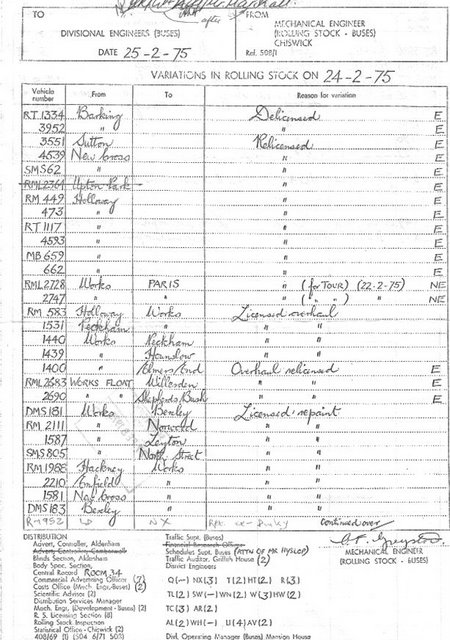 after
TO
FROM
MECHANICAL ENGINEER
DIVISIONAL ENGINEERS (BUSES)
(ROLLING STOCK - BUSES)
CHISWICK
DATE 25-2-75
Ref. 508/1
VARIATIONS IN ROLLING STOCK ON 24-2-75
Vehicle number From To Reason for variation
RT 1334 Barking Delicensed E
3952 " " E
3551 Sutton Relicensed E
4539 New Cross " E
SMS 62 " " E
RML 2761 Upton Park " E
RM 449 Holloway " E
473 " " E
RT 1117 " " E
4593 " " E
MB 659 " " E
662 " " E
RML 2728 Works PARIS " (for TOUR) (22-2-75) NE
2747 " " " ( " " ) NE
RM 583 Holloway Works Licensed overhaul
1531 Peckham " " "
1440 Works Peckham " "
1439 " Hounslow " "
1400 " Elmers End Overhaul relicensed E
RML 2683 WORKS FLOAT Willesden " " E
2690 " " Shepherds Bush " " E
DMS 181 Works Bexley Licensed repaint
RM 2111 " Norwood " "
1587 " Leyton " "
SMS 805 " North Street " "
RM 1988 Hackney Works " "
2210 Enfield " " "
1581 New Cross " " "
DMS 183 Bexley " " "
NX continued over
DISTRIBUTION
Advert, Controller, Aldenham
Blinds Section, Aldenham
Body Spec, Section,
Central Record ROOM 34
Commercial Advertising Officer (2)
Costs Office (Mech. Engr. Buses) (2)
Scientific Advisor (2)
Distribution Services Manager
Mech. Engr, (Development - Buses) (2)
R. S. Licensing Section (8)
Rolling Stock Inspection
Statistical Office - Chiswick (2)
408/69 (1) 504 6/71 503)
Traffic Supt. (Buses)
Financial Research Officer
Schedules Supt. (Buses) (ATTN OF MR HYSLOP)
Traffic Auditor, Griffith House (2)
District Engineers
Q (-) NX (3) T (2) HT (2) R (3)
TL (2) SW (-) WN (2) W (3) HW (2)
TC (3) AR (2)
AL (2) WH (-) U (4) AV (2)
Divl. Operating Manager (Buses) Mansion House
MECHANICAL ENGINEER
(ROLLING STOCK - BUSES)